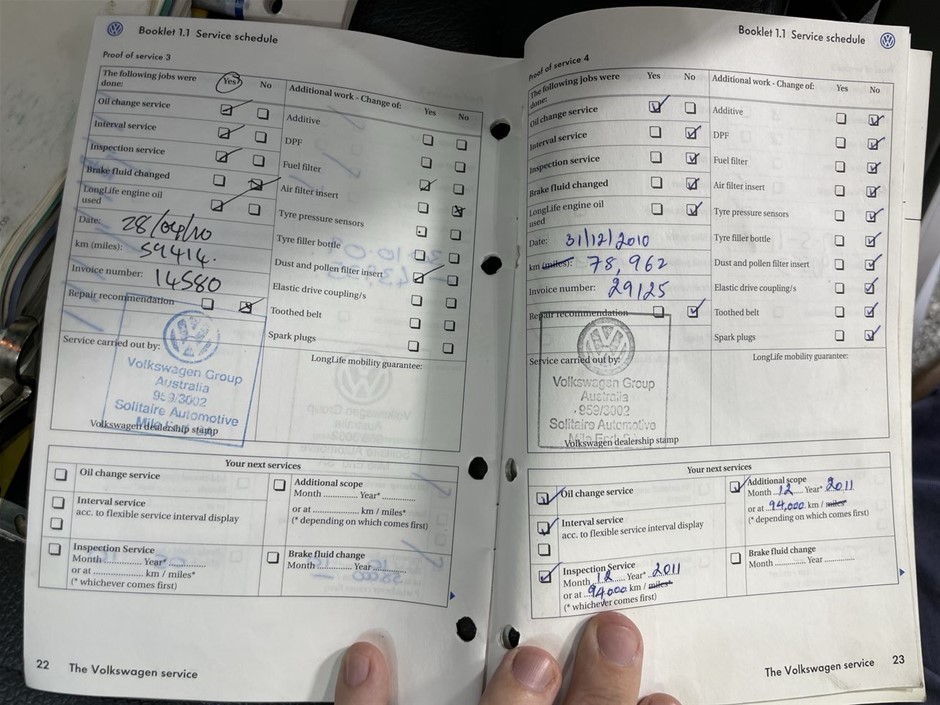 Booklet 1.1 Service schedule
Proof of service 3
The following jobs were done:
Yes
No
Oil change service
Interval service
Inspection service
Brake fluid changed
LongLife engine oil used
Date: 28/04/10
km (miles): 59414.
Invoice number: 14580
Repair recommendation
Service carried out by:
Volkswagen Group
Australia
959/3002
Solitaire Automotive
Mile End
Volkswagen dealership stamp
Additional work - Change of:
Yes
No
Additive
DPF
Fuel filter
Air filter insert
Tyre pressure sensors
Tyre filler bottle
Dust and pollen filter insert
Elastic drive coupling/s
Toothed belt
Spark plugs
LongLife mobility guarantee:
Your next services
Oil change service
Interval service
acc. to flexible service interval display
Inspection Service
Month ............ Year* ............
or at .................. km / miles*
(* whichever comes first)
Additional scope
Month ............ Year* ............
or at .................. km / miles*
(* depending on which comes first)
Brake fluid change
Month ............ Year ............
22 The Volkswagen service
Booklet 1.1 Service schedule
Proof of service 4
The following jobs were done:
Yes
No
Oil change service
Interval service
Inspection service
Brake fluid changed
LongLife engine oil used
Date: 31/12/2010
km (miles): 78,962
Invoice number: 29125
Repair recommendation
Service carried out by:
Volkswagen Group
Australia
959/3002
Solitaire Automotive
Mile End
Volkswagen dealership stamp
Additional work - Change of:
Yes
No
Additive
DPF
Fuel filter
Air filter insert
Tyre pressure sensors
Tyre filler bottle
Dust and pollen filter insert
Elastic drive coupling/s
Toothed belt
Spark plugs
LongLife mobility guarantee:
Your next services
Oil change service
Interval service
acc. to flexible service interval display
Inspection Service
Month 12 Year* 2011
or at 94,000 km / miles*
(* whichever comes first)
Additional scope
Month 12 Year* 2011
or at 94,000 km / miles*
(* depending on which comes first)
Brake fluid change
Month ............ Year ............
The Volkswagen service 23